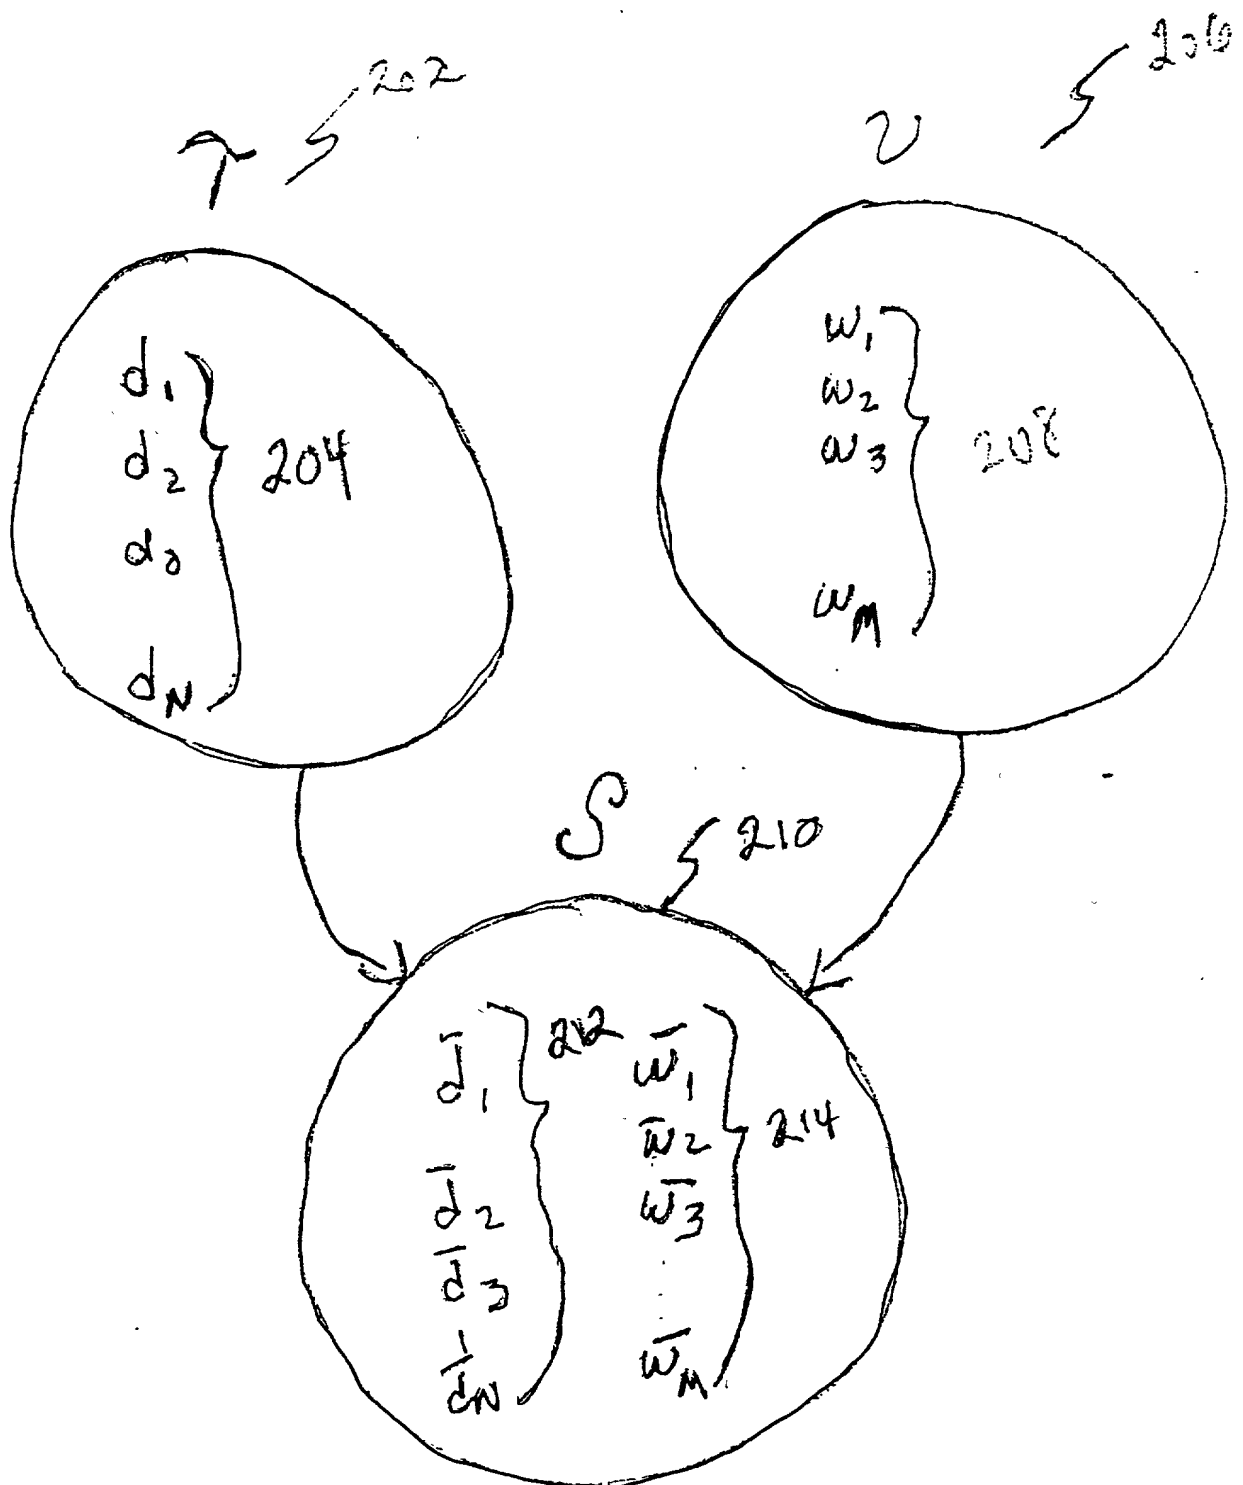 202
206
T
V
d1
d2
d3
dN
204
w1
w2
w3
wM
208
S
210
d̄1
d̄2
d̄3
d̄N
212
w̄1
w̄2
w̄3
w̄M
214